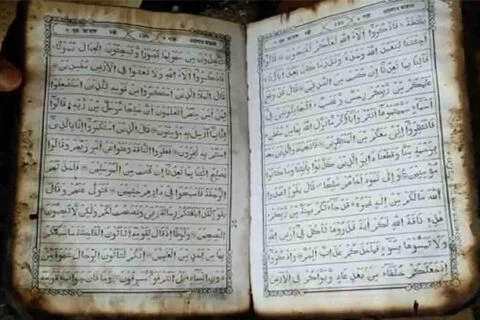 بَصْۜطَةً ۚ فَاذْكُرُوْٓا اٰلَآءَ اللّٰهِ لَعَلَّكُمْ تُفْلِحُوْنَ ۝ قَالُوْٓا
اَجِئْتَنَا لِنَعْبُدَ اللّٰهَ وَحْدَهٗ وَنَذَرَ مَا كَانَ يَعْبُدُ اٰبَآؤُنَا ۚ
فَاْتِنَا بِمَا تَعِدُنَآ اِنْ كُنْتَ مِنَ الصّٰدِقِيْنَ ۝ قَالَ قَدْ وَقَعَ
عَلَيْكُمْ مِّنْ رَّبِّكُمْ رِجْسٌ وَّغَضَبٌ ۚ اَتُجَادِلُوْنَنِيْ فِيْٓ
اَسْمَآءٍ سَمَّيْتُمُوْهَآ اَنْتُمْ وَاٰبَآؤُكُمْ مَّا نَزَّلَ اللّٰهُ بِهَا مِنْ سُلْطٰنٍ ۚ
فَانْتَظِرُوْٓا اِنِّيْ مَعَكُمْ مِّنَ الْمُنْتَظِرِيْنَ ۝ فَاَنْجَيْنٰهُ وَالَّذِيْنَ مَعَهٗ
بِرَحْمَةٍ مِّنَّا وَقَطَعْنَا دَابِرَ الَّذِيْنَ كَذَّبُوْا بِاٰيٰتِنَا وَمَا كَانُوْا
مُؤْمِنِيْنَ ۝ وَاِلٰى ثَمُوْدَ اَخَاهُمْ صٰلِحًا ۘ قَالَ يٰقَوْمِ اعْبُدُوا
اللّٰهَ مَا لَكُمْ مِّنْ اِلٰهٍ غَيْرُهٗ ۚ قَدْ جَآءَتْكُمْ بَيِّنَةٌ مِّنْ رَّبِّكُمْ ۚ
هٰذِهٖ نَاقَةُ اللّٰهِ لَكُمْ اٰيَةً فَذَرُوْهَا تَاْكُلْ فِيْٓ اَرْضِ اللّٰهِ
وَلَا تَمَسُّوْهَا بِسُوْٓءٍ فَيَاْخُذَكُمْ عَذَابٌ اَلِيْمٌ ۝ وَاذْكُرُوْٓا
اِذْ جَعَلَكُمْ خُلَفَآءَ مِنْۢ بَعْدِ عَادٍ وَّبَوَّاَكُمْ فِي الْاَرْضِ
تَتَّخِذُوْنَ مِنْ سُهُوْلِهَا قُصُوْرًا وَّتَنْحِتُوْنَ الْجِبَالَ بُيُوْتًا ۚ
فَاذْكُرُوْٓا اٰلَآءَ اللّٰهِ وَلَا تَعْثَوْا فِي الْاَرْضِ مُفْسِدِيْنَ ۝
قَالَ الْمَلَاُ الَّذِيْنَ اسْتَكْبَرُوْا مِنْ قَوْمِهٖ لِلَّذِيْنَ اسْتُضْعِفُوْا
لِمَنْ اٰمَنَ مِنْهُمْ اَتَعْلَمُوْنَ اَنَّ صٰلِحًا مُّرْسَلٌ مِّنْ رَّبِّهٖ ۚ قَالُوْٓا
اِنَّا بِمَآ اُرْسِلَ بِهٖ مُؤْمِنُوْنَ ۝ قَالَ الَّذِيْنَ اسْتَكْبَرُوْٓا اِنَّا بِالَّذِيْٓ
اٰمَنْتُمْ بِهٖ كٰفِرُوْنَ ۝ فَعَقَرُوا النَّاقَةَ وَعَتَوْا عَنْ اَمْرِ رَبِّهِمْ وَقَالُوْا
يٰصٰلِحُ ائْتِنَا بِمَا تَعِدُنَآ اِنْ كُنْتَ مِنَ الْمُرْسَلِيْنَ ۝ فَاَخَذَتْهُمُ
الرَّجْفَةُ فَاَصْبَحُوْا فِيْ دَارِهِمْ جٰثِمِيْنَ ۝ فَتَوَلّٰى عَنْهُمْ وَقَالَ
يٰقَوْمِ لَقَدْ اَبْلَغْتُكُمْ رِسَالَةَ رَبِّيْ وَنَصَحْتُ لَكُمْ وَلٰكِنْ لَّا تُحِبُّوْنَ
النّٰصِحِيْنَ ۝ وَلُوْطًا اِذْ قَالَ لِقَوْمِهٖٓ اَتَاْتُوْنَ الْفَاحِشَةَ مَا سَبَقَكُمْ
بِهَا مِنْ اَحَدٍ مِّنَ الْعٰلَمِيْنَ ۝ اِنَّكُمْ لَتَاْتُوْنَ الرِّجَالَ شَهْوَةً مِّنْ
دُوْنِ النِّسَآءِ ۚ بَلْ اَنْتُمْ قَوْمٌ مُّسْرِفُوْنَ ۝ وَمَا كَانَ جَوَابَ قَوْمِهٖٓ